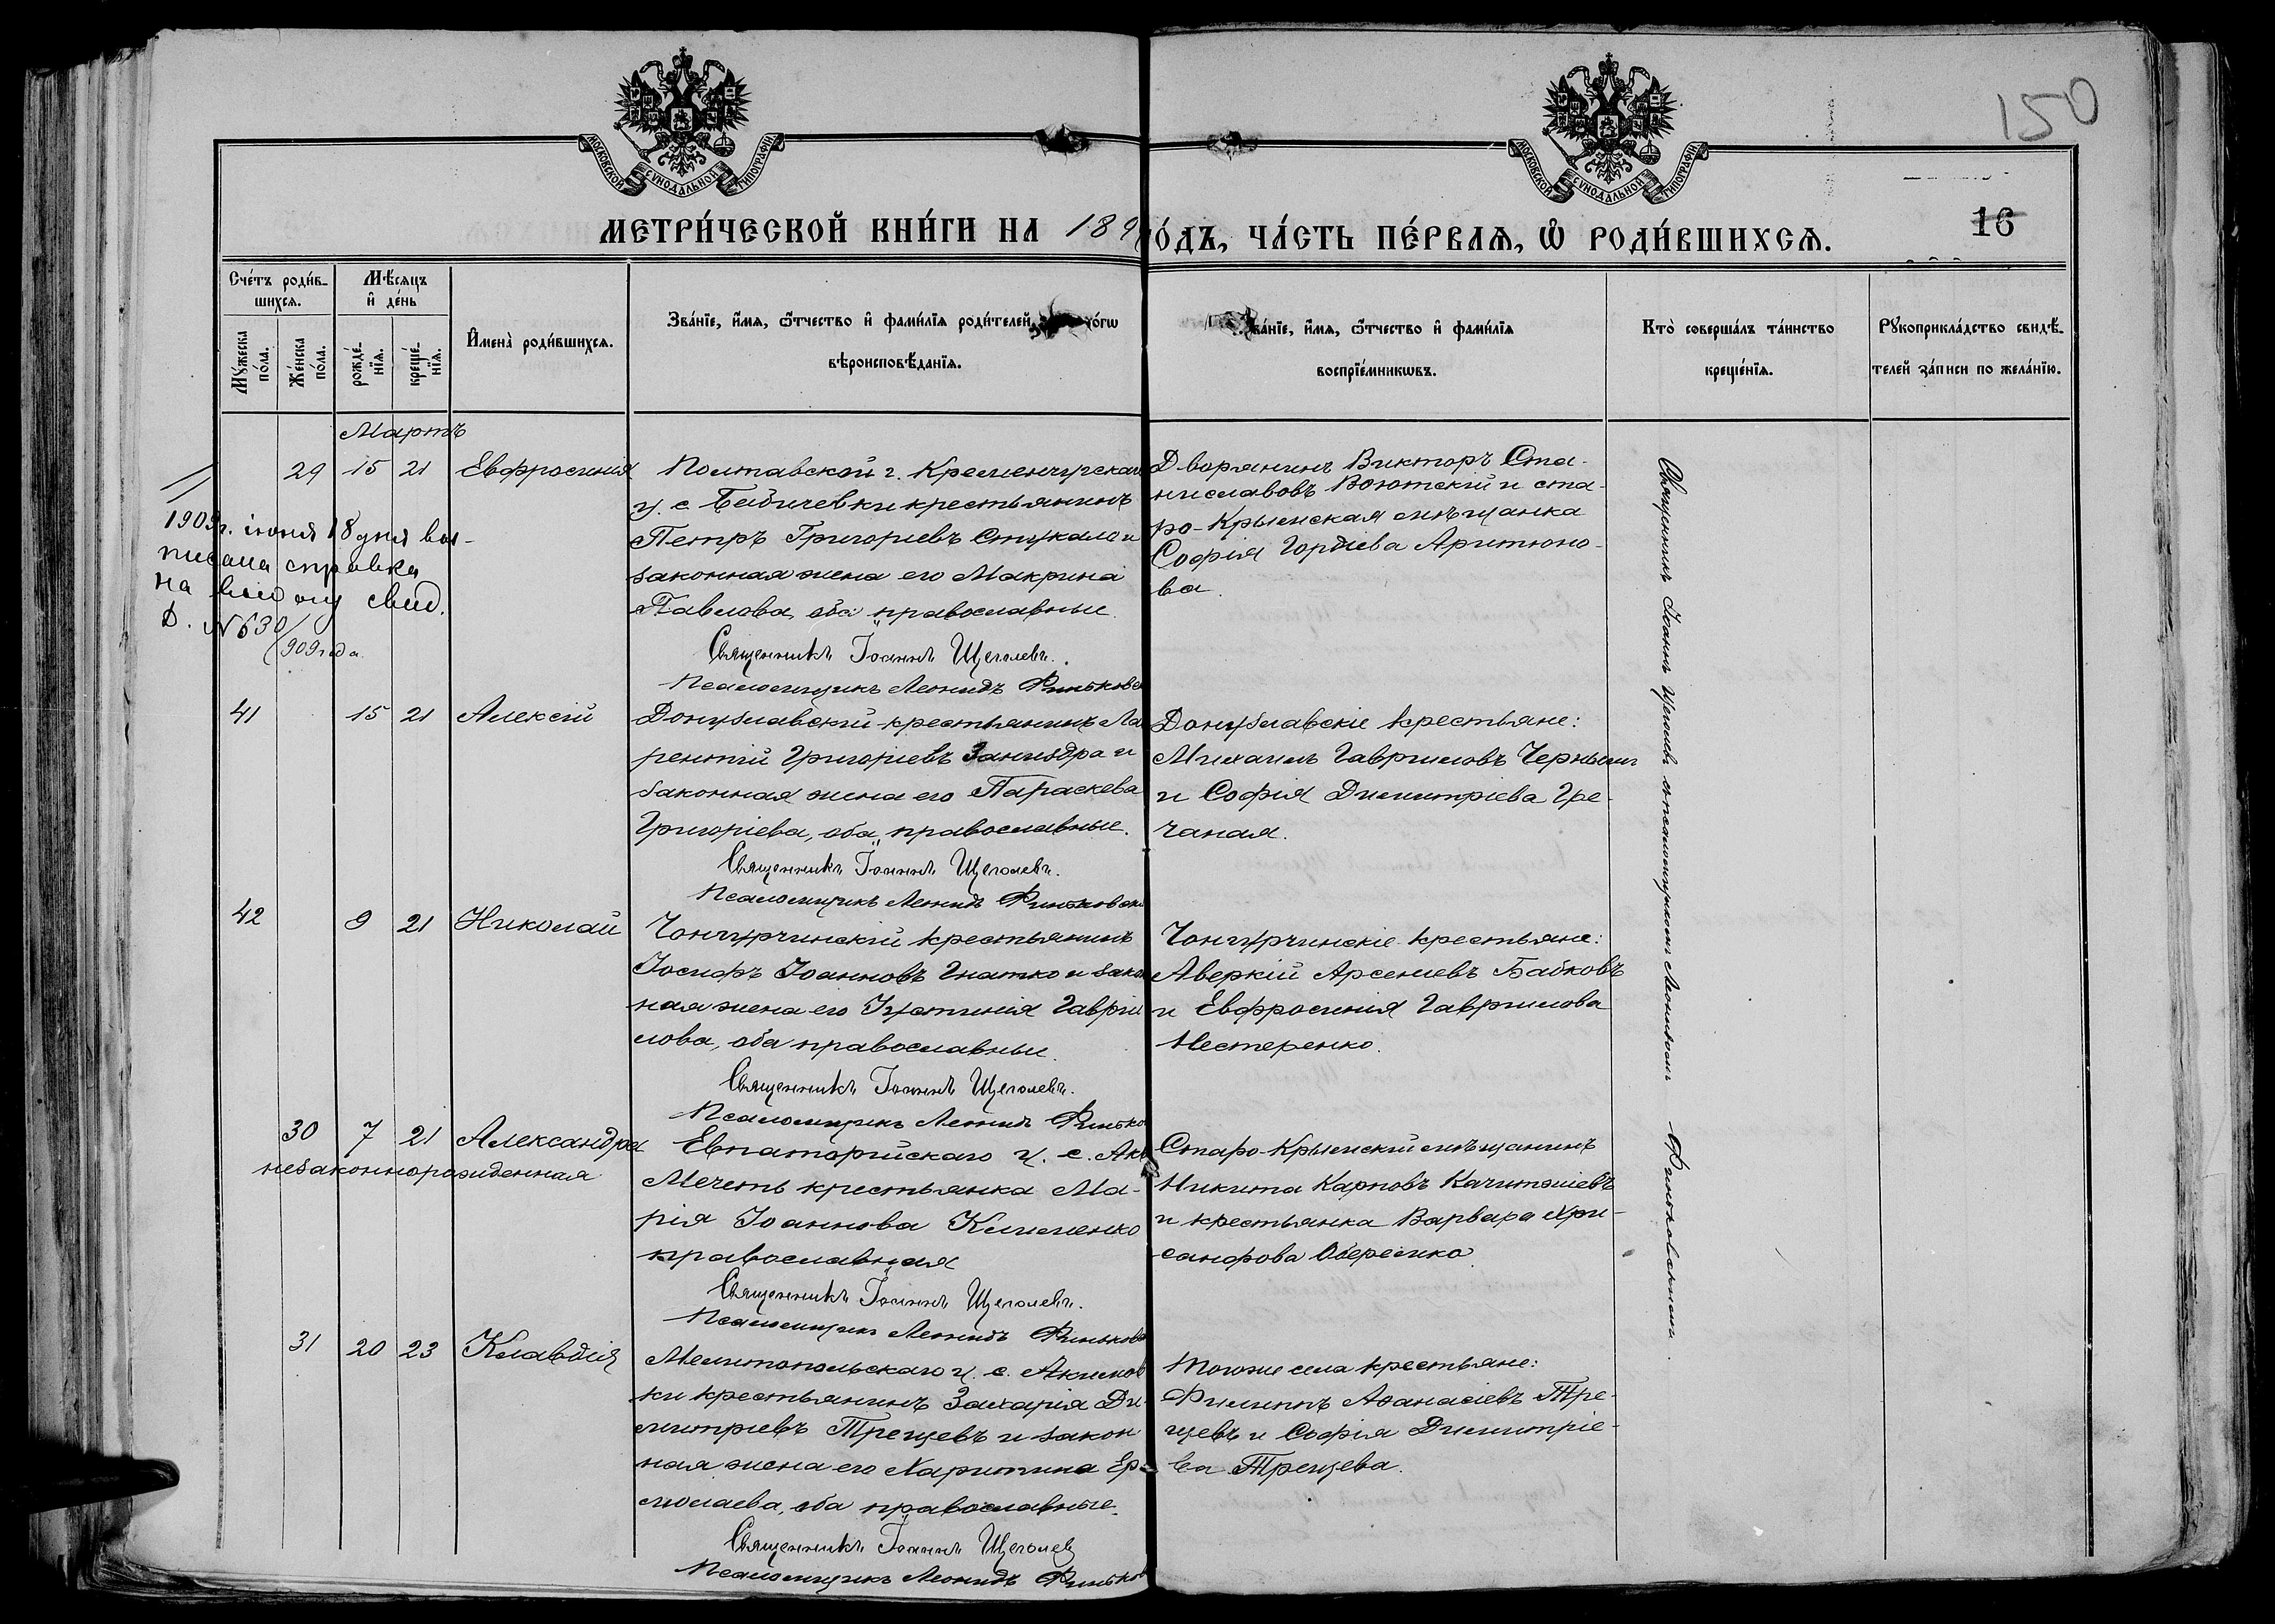 150
МОСКОВСКОЙ СѴНОДАЛЬНОЙ ТИПОГРАФІИ
МОСКОВСКОЙ СѴНОДАЛЬНОЙ ТИПОГРАФІИ
МЕТРИ́ЧЕСКОЙ КНИ́ГИ НА 189
О́ДЪ, ЧА́СТЬ ПЕ́РВАЯ, Ѡ҆ РОДИ́ВШИХСЯ.
16
Сче́тъ роди́в-
шихся.
Мѣ́сяцъ
и҆ де́нь
Мꙋ́жеска
по́ла.
Же́нска
по́ла.
рожде́-
нїя.
креще́-
нїя.
И҆мена̀ роди́вшихся.
Зва́нїе, и҆́мя, ѻ҆́тчество и҆ фами́лїя роди́телей,
о́гѡ
вѣроисповѣ́данїя.
ва́нїе, и҆́мя, ѻ҆́тчество и҆ фами́лїя
воспрїе́мникѡвъ.
Кто̀ соверша́лъ та́инство
креще́нїя.
Рꙋкоприкла́дство свидѣ́-
телей за́писи по жела́нїю.
Мартъ
29 15 21 Евфросинія
Полтавской г. Кременчугскаго
у. с. крестьянинъ
Петръ Григоріевъ Стукало и
законная жена его Макрина
Павлова, оба православные.
Священникъ Іоаннъ Щеголевъ.
Псаломщикъ Леонидъ Финьковс
Дворянинъ Викторъ Ста-
ниславовъ и ста-
ро-Крымская мѣщанка
Софія Гордіева Аритюно-
ва.
1909 г. іюня 18 дня вы-
писана справка
на свид.
N 630/909 года
41 15 21 Алексій
Донузлавскій крестьянинъ Лав
рентій Григоріевъ Заниздра и
законная жена его Параскева
Григоріева, оба православные.
Священникъ Іоаннъ Щеголевъ.
Псаломщикъ Леонидъ Финьковски
Донузлавскіе крестьяне:
Михаилъ Гавриловъ Чернышъ
и Софія Димитріева Гре-
чаная.
42 9 21 Николай
Чонгурчинскій крестьянинъ
Іосифъ Іоанновъ Гнатко и закон
ная жена его Іустинія Гаврии
лова, оба православные.
Священникъ Іоаннъ Щеголевъ.
Псаломщикъ Леонидъ Финько
Чонгурчинскіе крестьяне:
Аверкій Арсеніевъ Бабковъ
и Евфросинія Гаврилова
Нестеренко.
30 7 21 Александра
незаконнорожденная
Евпаторійскаго у. с. Акъ
Мечеть крестьянка Ма-
рія Іоаннова Клименко
православная
Священникъ Іоаннъ Щеголевъ.
Псаломщикъ Леонидъ Финьков
Старо-Крымскій мѣщанинъ
Никита Карповъ
и крестьянка Варвара Хри-
санфова Оберемко.
31 20 23 Клавдія
Мелитопольскаго у. с. Акимов
ки крестьянинъ Захарія Ди-
митріевъ Трещевъ и закон
ная жена его Харитина Ер-
молаева, оба православные.
Священникъ Іоаннъ Щеголев
Псаломщикъ Леонидъ Финьков
Того же села крестьяне:
Филиппъ Аѳанасіевъ Тре-
щевъ и Софія Димитріе-
ва Трещева.
Священникъ Іоаннъ Щеголевъ съ псаломщикомъ Леонидомъ Финьковскимъ.